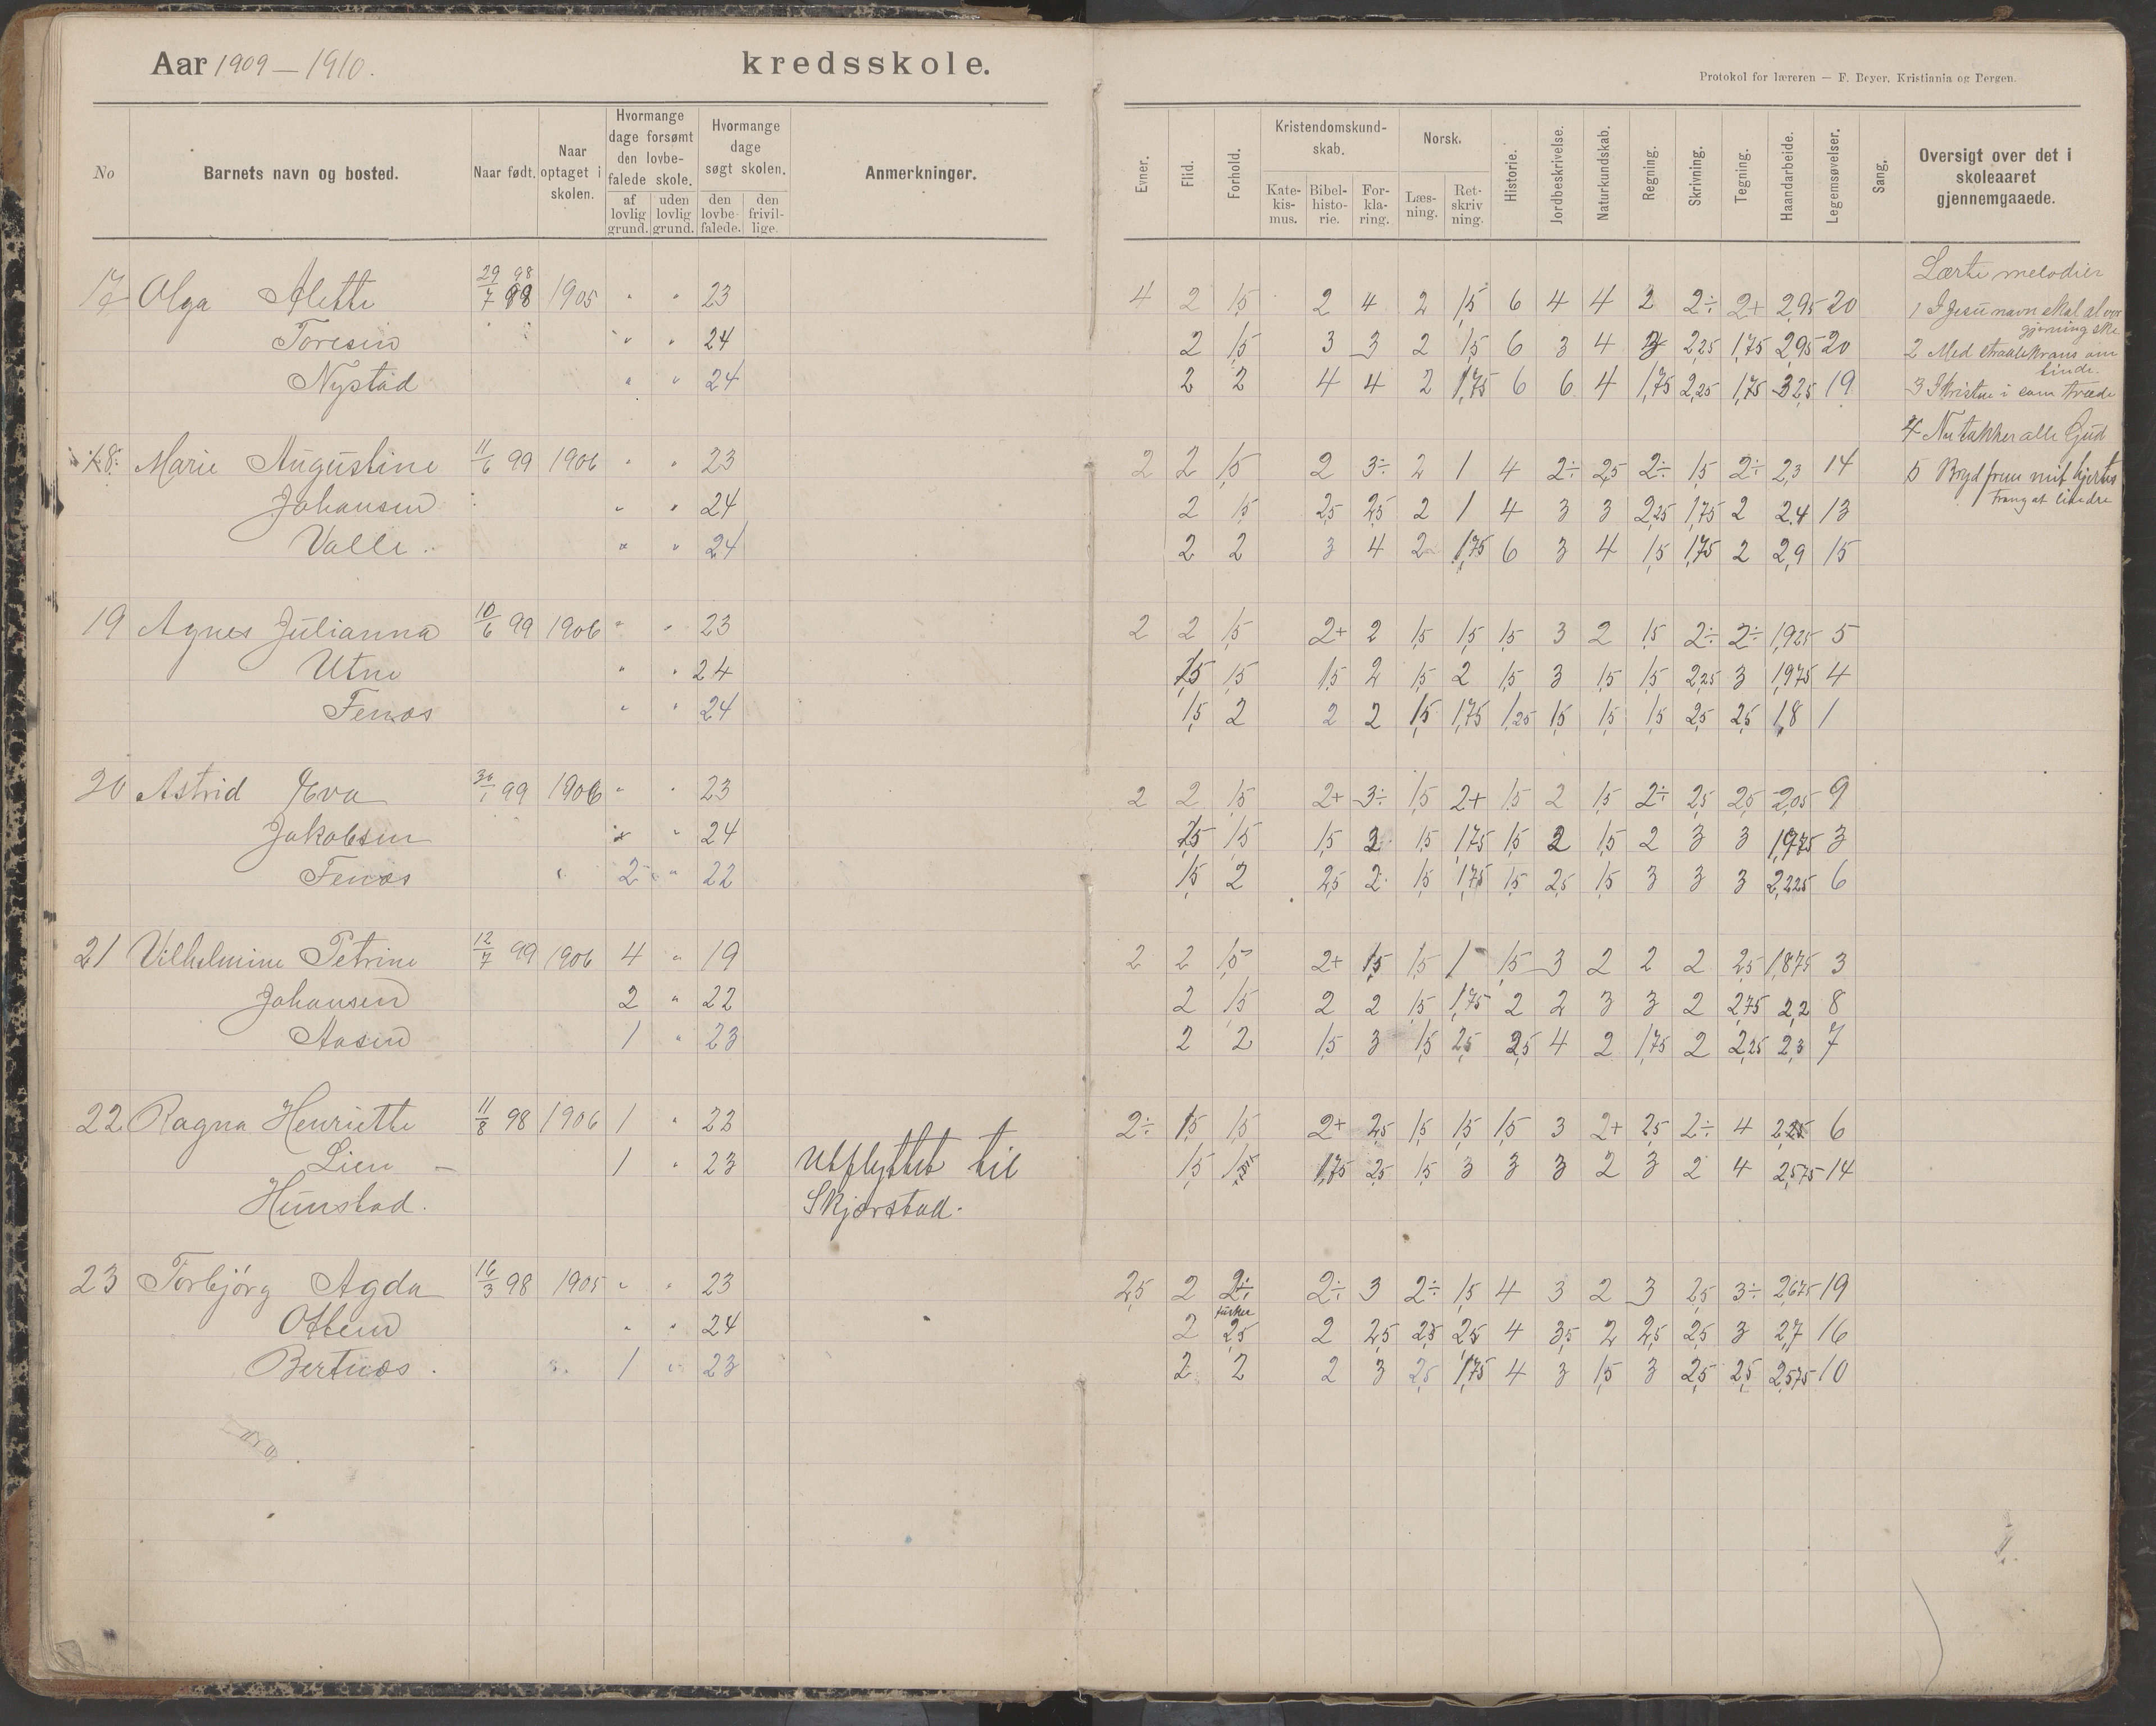 Aar 1909–1910. kredsskole.
Protokol for læreren — F. Beyer, Kristiania og Bergen.
No Barnets navn og bosted. Naar født. Naar optaget i skolen. Hvormange dage forsømt den lovbefalede skole. af lovlig grund. uden lovlig grund. Hvormange dage søgt skolen. den lovbefalede. den frivillige. Anmerkninger.
Evner. Flid. Forhold. Kristendomskundskab. Katekismus. Bibelhistorie. Forklaring. Norsk. Læsning. Retskrivning. Historie. Jordbeskrivelse. Naturkundskab. Regning. Skrivning. Tegning. Haandarbeide. Legemsøvelser. Sang. Oversigt over det i skoleaaret gjennemgaaede.
Lærte melodier
17 Olga Alette 29/7 98 1905 " " 23 4 2 1,5 2 4 2 1,5 6 4 4 2 2÷ 2+ 2,95 20 1 I Jesu navn skal al vor gjerning ske
Toresin " " 24 2 1,5 3 3 2 1,5 6 3 4 3 2,25 1,75 2,95 20 2 Med straalekrans om tinde.
Nystad " " 24 2 2 4 4 2 1,75 6 6 4 1,75 2,25 1,75 3,25 19 3 I kristne i som træde
4 Nu takker alle Gud
18 Marie Augustine 11/6 99 1906 " " 23 2 2 1,5 2 3÷ 2 1 4 2÷ 2,5 2÷ 1,5 2÷ 2,3 14 5 Bryd frem mit hjertes trang at lindre
Johansen " " 24 2 1,5 2,5 2,5 2 1 4 3 3 2,25 1,75 2 2,4 13
Valle. " " 24 2 2 3 4 2 1,75 6 3 4 1,5 1,75 2 2,9 15
19 Agnes Julianna 10/6 99 1906 " " 23 2 2 1,5 2+ 2 1,5 1,5 1,5 3 2 1,5 2÷ 2÷ 1,925 5
Utne " " 24 1,5 1,5 1,5 2 1,5 2 1,5 3 1,5 1,5 2,25 3 1,975 4
Fenæs " " 24 1,5 2 2 2 1,5 1,75 1,25 1,5 1,5 1,5 2,5 2,5 1,8 1
20 Astrid Eva 30/1 99 1906 " " 23 2 2 1,5 2+ 3÷ 1,5 2+ 1,5 2 1,5 2÷ 2,5 2,5 2,05 9
Jakobsen " " 24 1,5 1,5 1,5 2 1,5 1,75 1,5 2 1,5 2 3 3 1,975 3
Fenæs 2 " 22 1,5 2 2,5 2 1,5 1,75 1,5 2,5 1,5 3 3 3 2,225 6
21 Vilhelmine Petrine 12/7 99 1906 4 " 19 2 2 1,5 2+ 1,5 1,5 1 1,5 3 2 2 2 2,5 1,875 3
Johansen 2 " 22 2 1,5 2 2 1,5 1,75 2 2 3 3 2 2,75 2,2 8
Aasen 1 " 23 2 2 1,5 3 1,5 2,5 2,5 4 2 1,75 2 2,25 2,3 7
22 Ragna Henriette 11/8 98 1906 1 " 23 2÷ 1,5 1,5 2+ 2,5 1,5 1,5 1,5 3 2+ 2,5 2÷ 4 2,25 6
Lien – 1 " 23 Utflyttet til 1,5 1,75 2,5 1,5 3 3 3 2 3 2 4 2,575 14
Hunstad. Skjerstad.
23 Torbjörg Agda 16/3 98 1905 " " 23 2,5 2 2÷ 2÷ 3 2÷ 1,5 4 3 2 3 2,5 3÷ 2,675 19
Ottem " " 24 2 2,5 2 2,5 2,5 2,5 4 3,5 2 2,5 2,5 3 2,7 16
Bertnæs. 1 " 23 2 2 2 3 2,5 1,75 4 3 1,5 3 2,5 2,5 2,575 10